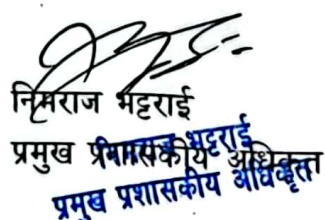 निमराज भट्टराई
प्रमुख प्रशासकीय अधिकृत
निमराज भट्टराई
प्रमुख प्रशासकीय अधिकृत